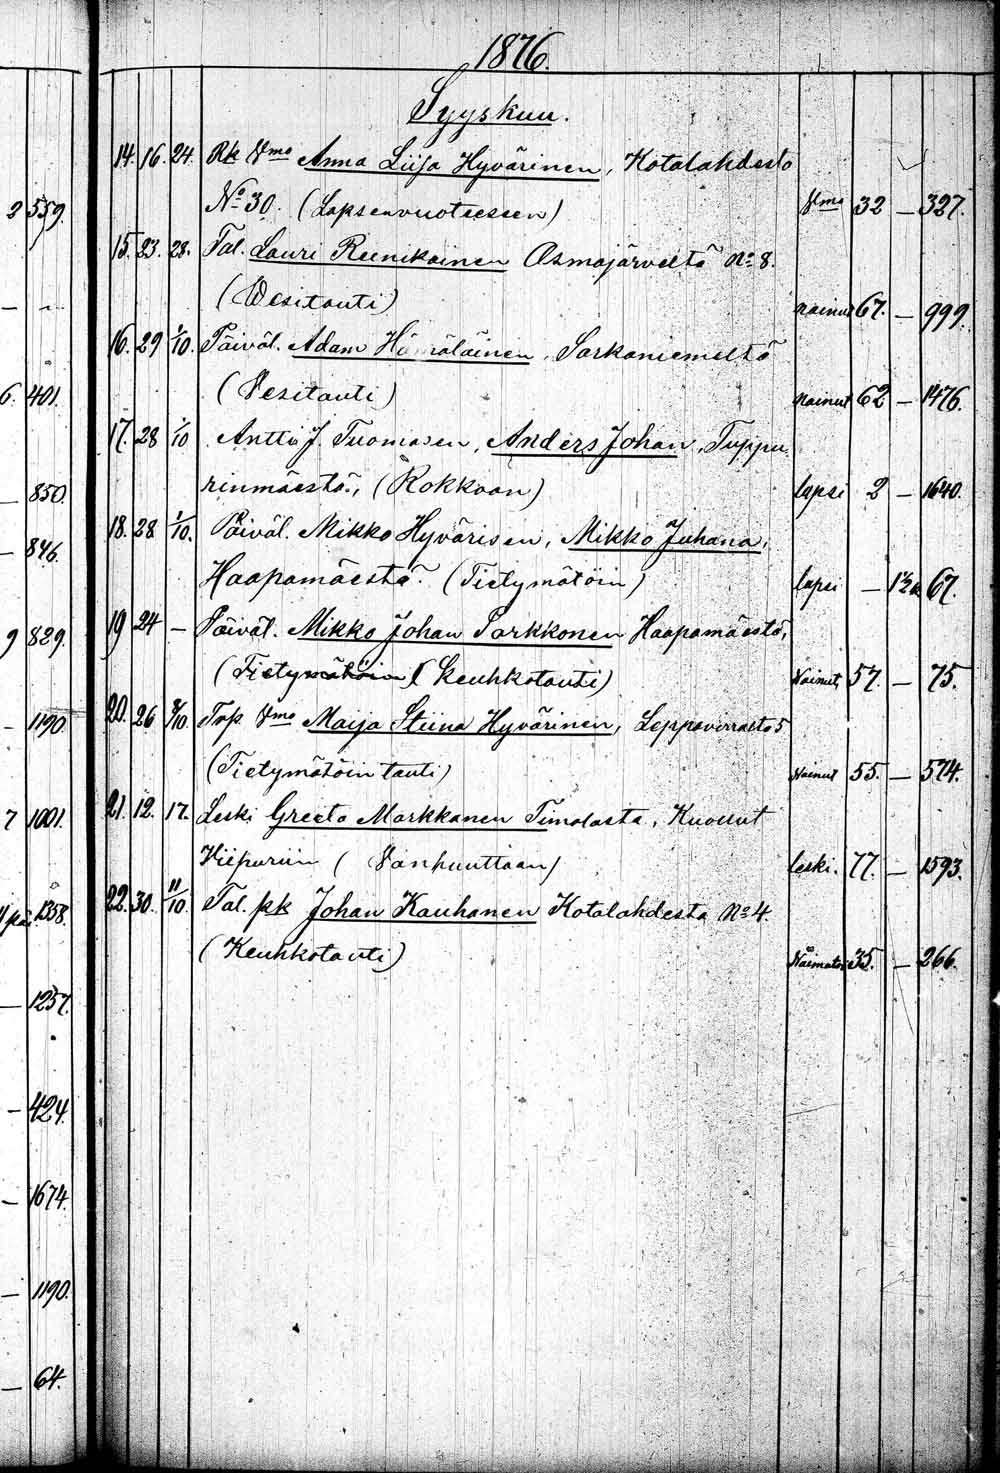 1876.
Syyskuu.
14. 16. 24. Rk Vmo Anna Liisa Hyvärinen, Kotalahdesta
2 559. No 30. (Lapsenvuoteesen) Vmo 32 — 327.
15. 23. 28. Tal. Lauri Reinikainen Osmajärveltä No 8.
— (Vesitauti) nainut 67. — 999.
16. 29 1/10. Päiväl. Adam Hämäläinen, Sarkaniemeltä
6. 401. (Vesitauti) nainut 62 — 1476.
17. 28 1/10 Antti J. Tuomasen, Anders Johan, Tuppu-
— 850. rinmäestä, (Rokkoon) lapsi 2 — 1640.
18. 28 1/10. Päiväl. Mikko Hyvärisen, Mikko Juhana,
— 846. Haapamäestä. (Tietymätöin) lapsi — 1 1/2 k 67.
19 24 — Päiväl. Mikko Johan Parkkonen Haapamäestä,
9 829. (Tietymätöin) (Keuhkotauti) Nainut 57. — 75.
20. 26 8/10 Vmo Maija Stiina Hyvärinen, Leppävirralta 5
— 1190. (Tietymätöin tauti) Nainut 55. — 574.
21. 12. 17. Leski Greeta Markkanen Timolasta, Kuollut
7 1001. Viipuriin (Vanhuuttaan) leski. 77. — 1593.
22. 30. 11/10 Tal. pk Johan Kauhanen Kotalahdesta No 4.
1358. (Keuhkotauti) Naimatoin 35. — 266.
— 1257.
— 424.
— 1674.
— 1190.
— 64.